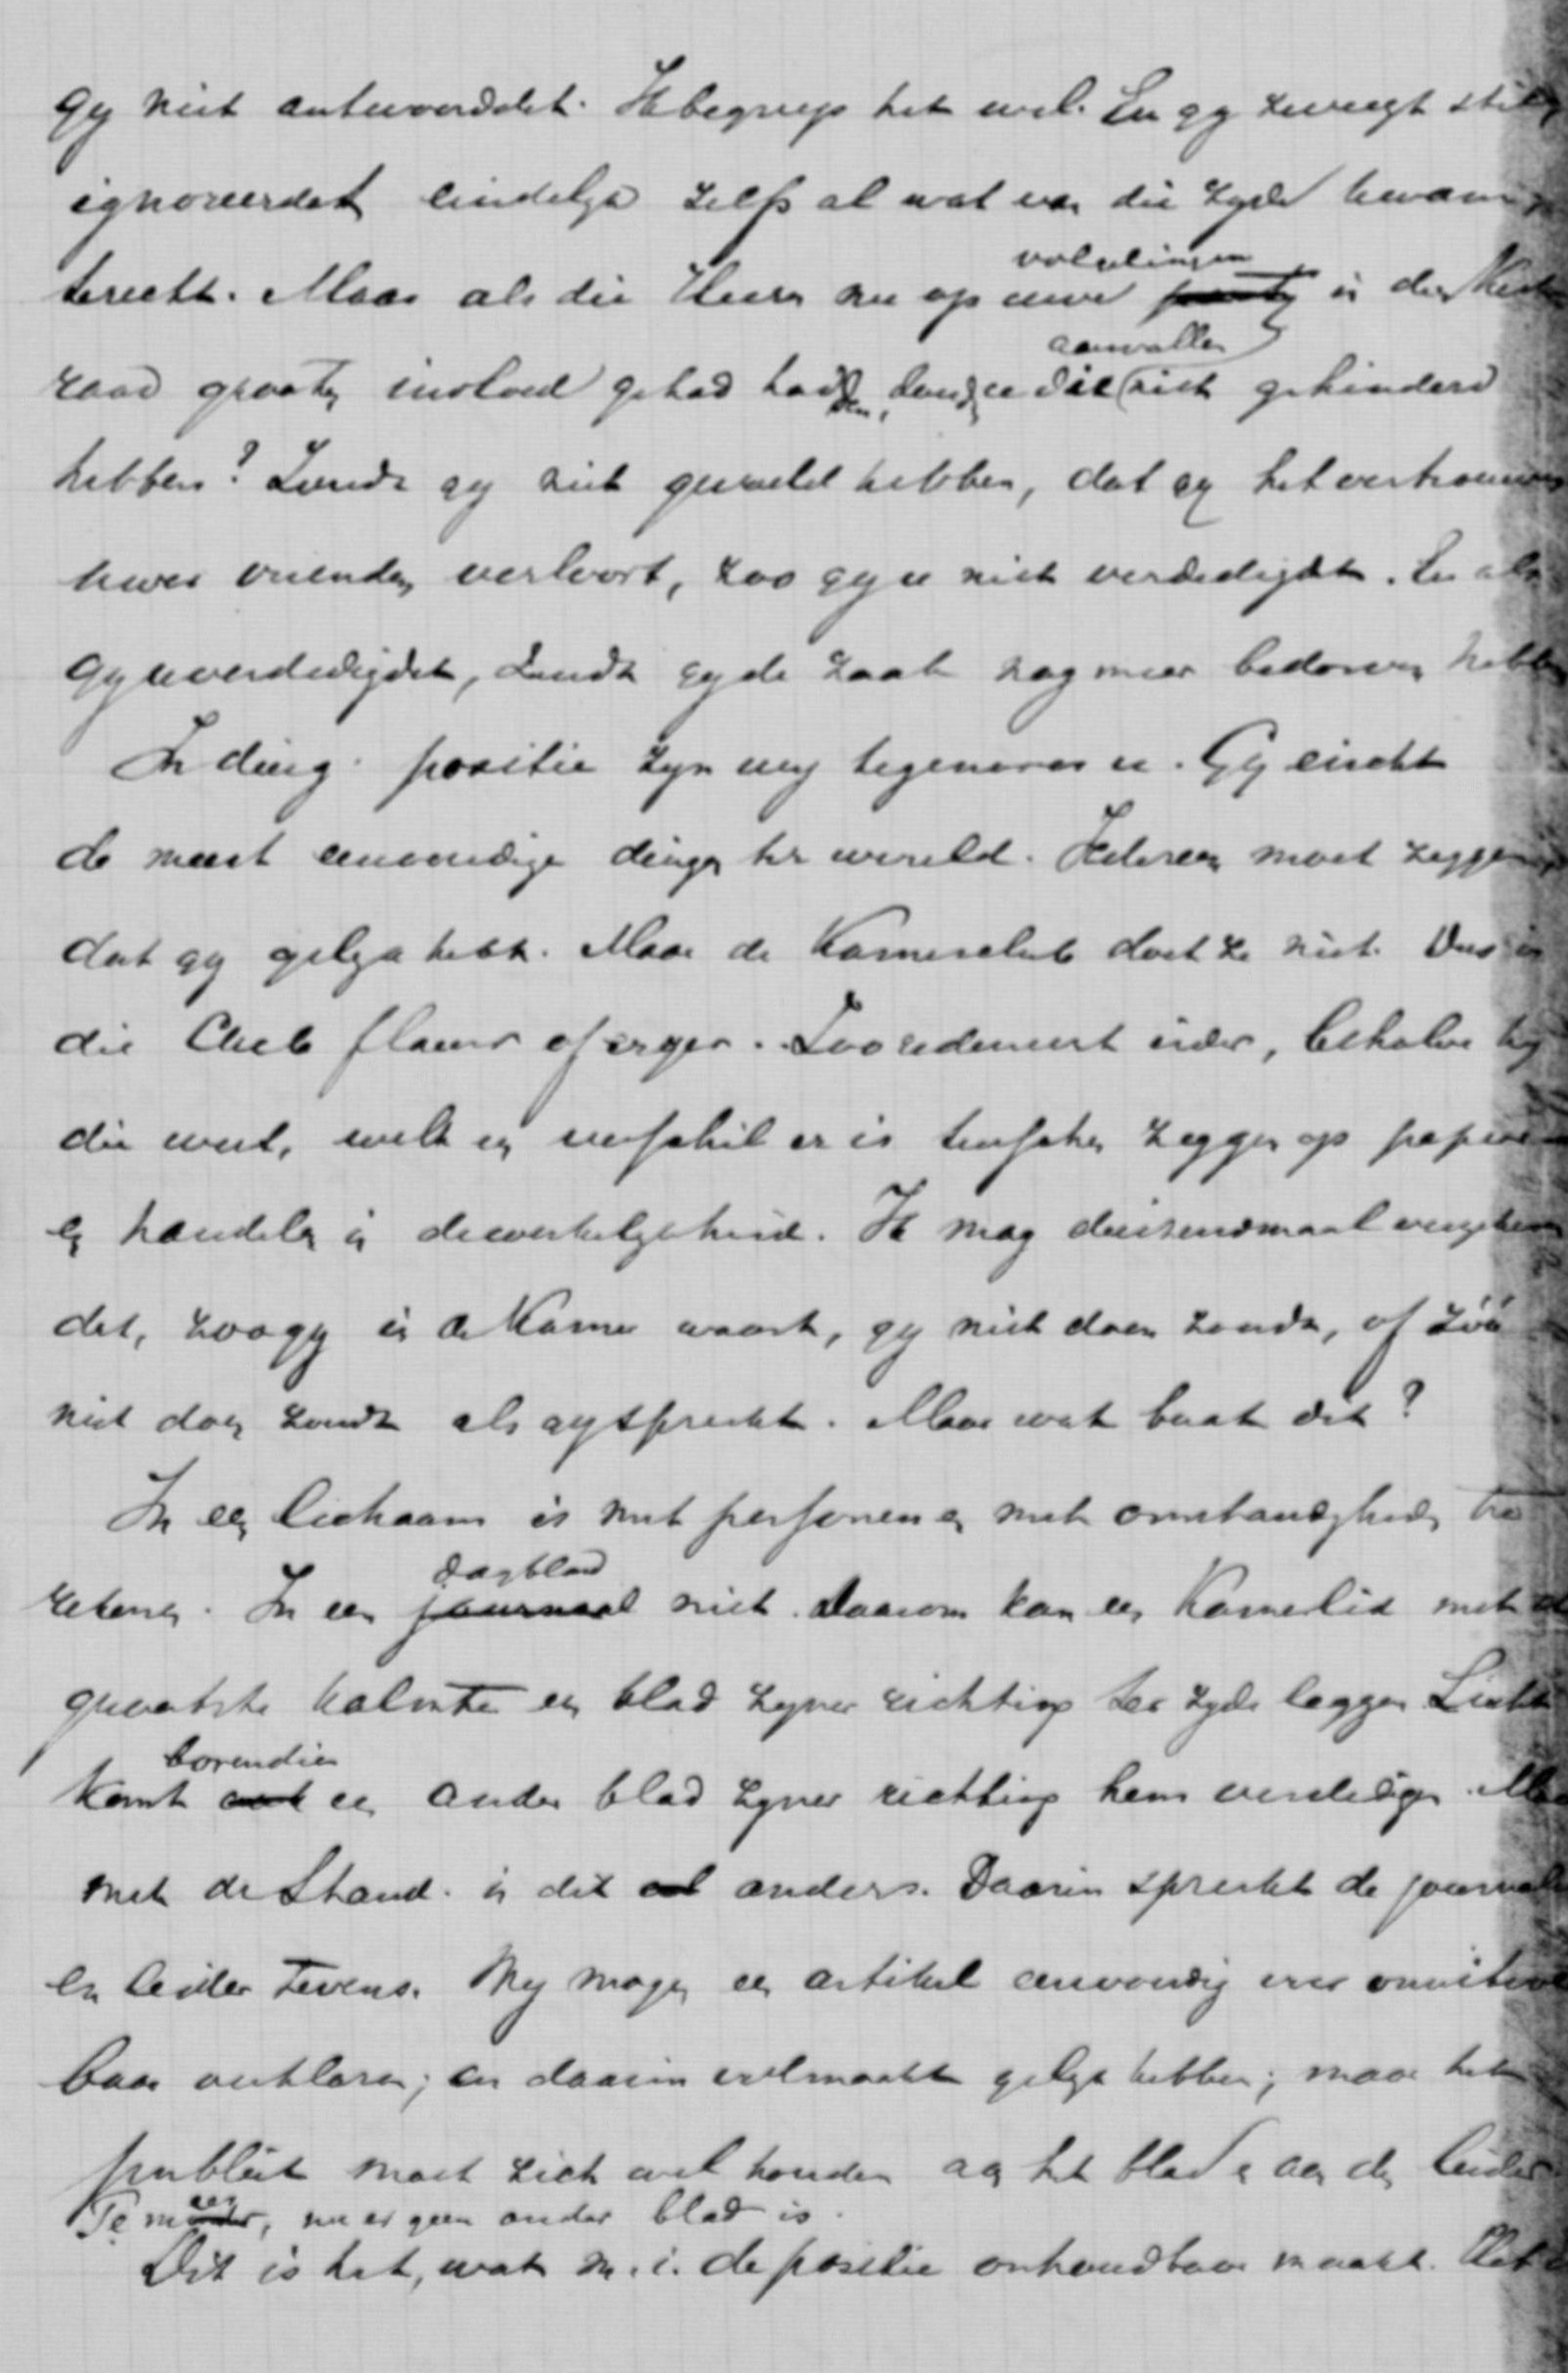 gy niet antwoorddet. Ik begreep het wel. En gy zweegt stil,
ignoreerdet eindelyk zelfs al wat van die zyde kwam,
terecht. Maar als die Heeren nu op uwe volgelingen in den Kerk
raad grooten invloed gehad hadden, zoudt ge die aanvallen niet gehinderd
hebben? Zoudt gy niet gevoeld hebben, dat gy het vertrouwen
uwer vrienden verloort, zoo gy u niet verdedigdet. En als
gy u verdedigdet, zoudt gy de zaak nog meer bedorven hebben
In die positie zyn wy tegenover u. Gy eischt
de meest eenvoudige dingen ter wereld. Iedereen moet zeggen,
dat gy gelyk hebt. Maar de Kamerclub doet ze niet. Dus is
die Club flauw of erger. Zoo redeneert ieder, behalve hy
die weet, welk een verschil er is tusschen zeggen op papier
en handelen in de werkelykheid. Ik mag duizendmaal
dat, zoo gy in de Kamer waart, gy niet doen zoudt, of zóó
niet doen zoudt als gy spreekt. Maar wat baat dit?
In een lichaam is met personen en met omstandigheden te
rekenen. In een dagblad niet. Daarom kan een Kamerlid met de
grootste kalmte een blad zyner richting ter zyde leggen. Licht
komt bovendien een ander blad zyner richting hem verdedigen. Maar
met de Stand. is dit anders. Daarin spreekt de journalist
en leider tevens. Wy mogen een artikel eenvoudig voor
baar verklaren; en daarin volmaakt gelyk hebben; maar het
publiek moet zich wel houden aan het blad en aan den leider
Te meer, nu er geen ander blad is.
Dit is het, wat m.i. de positie onhoudbaar maakt. Het